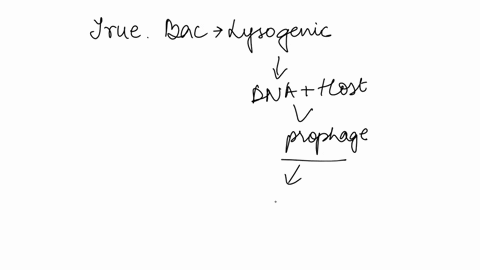 True. Bac → Lysogenic
↓
DNA + Host
↓
prophage
↓